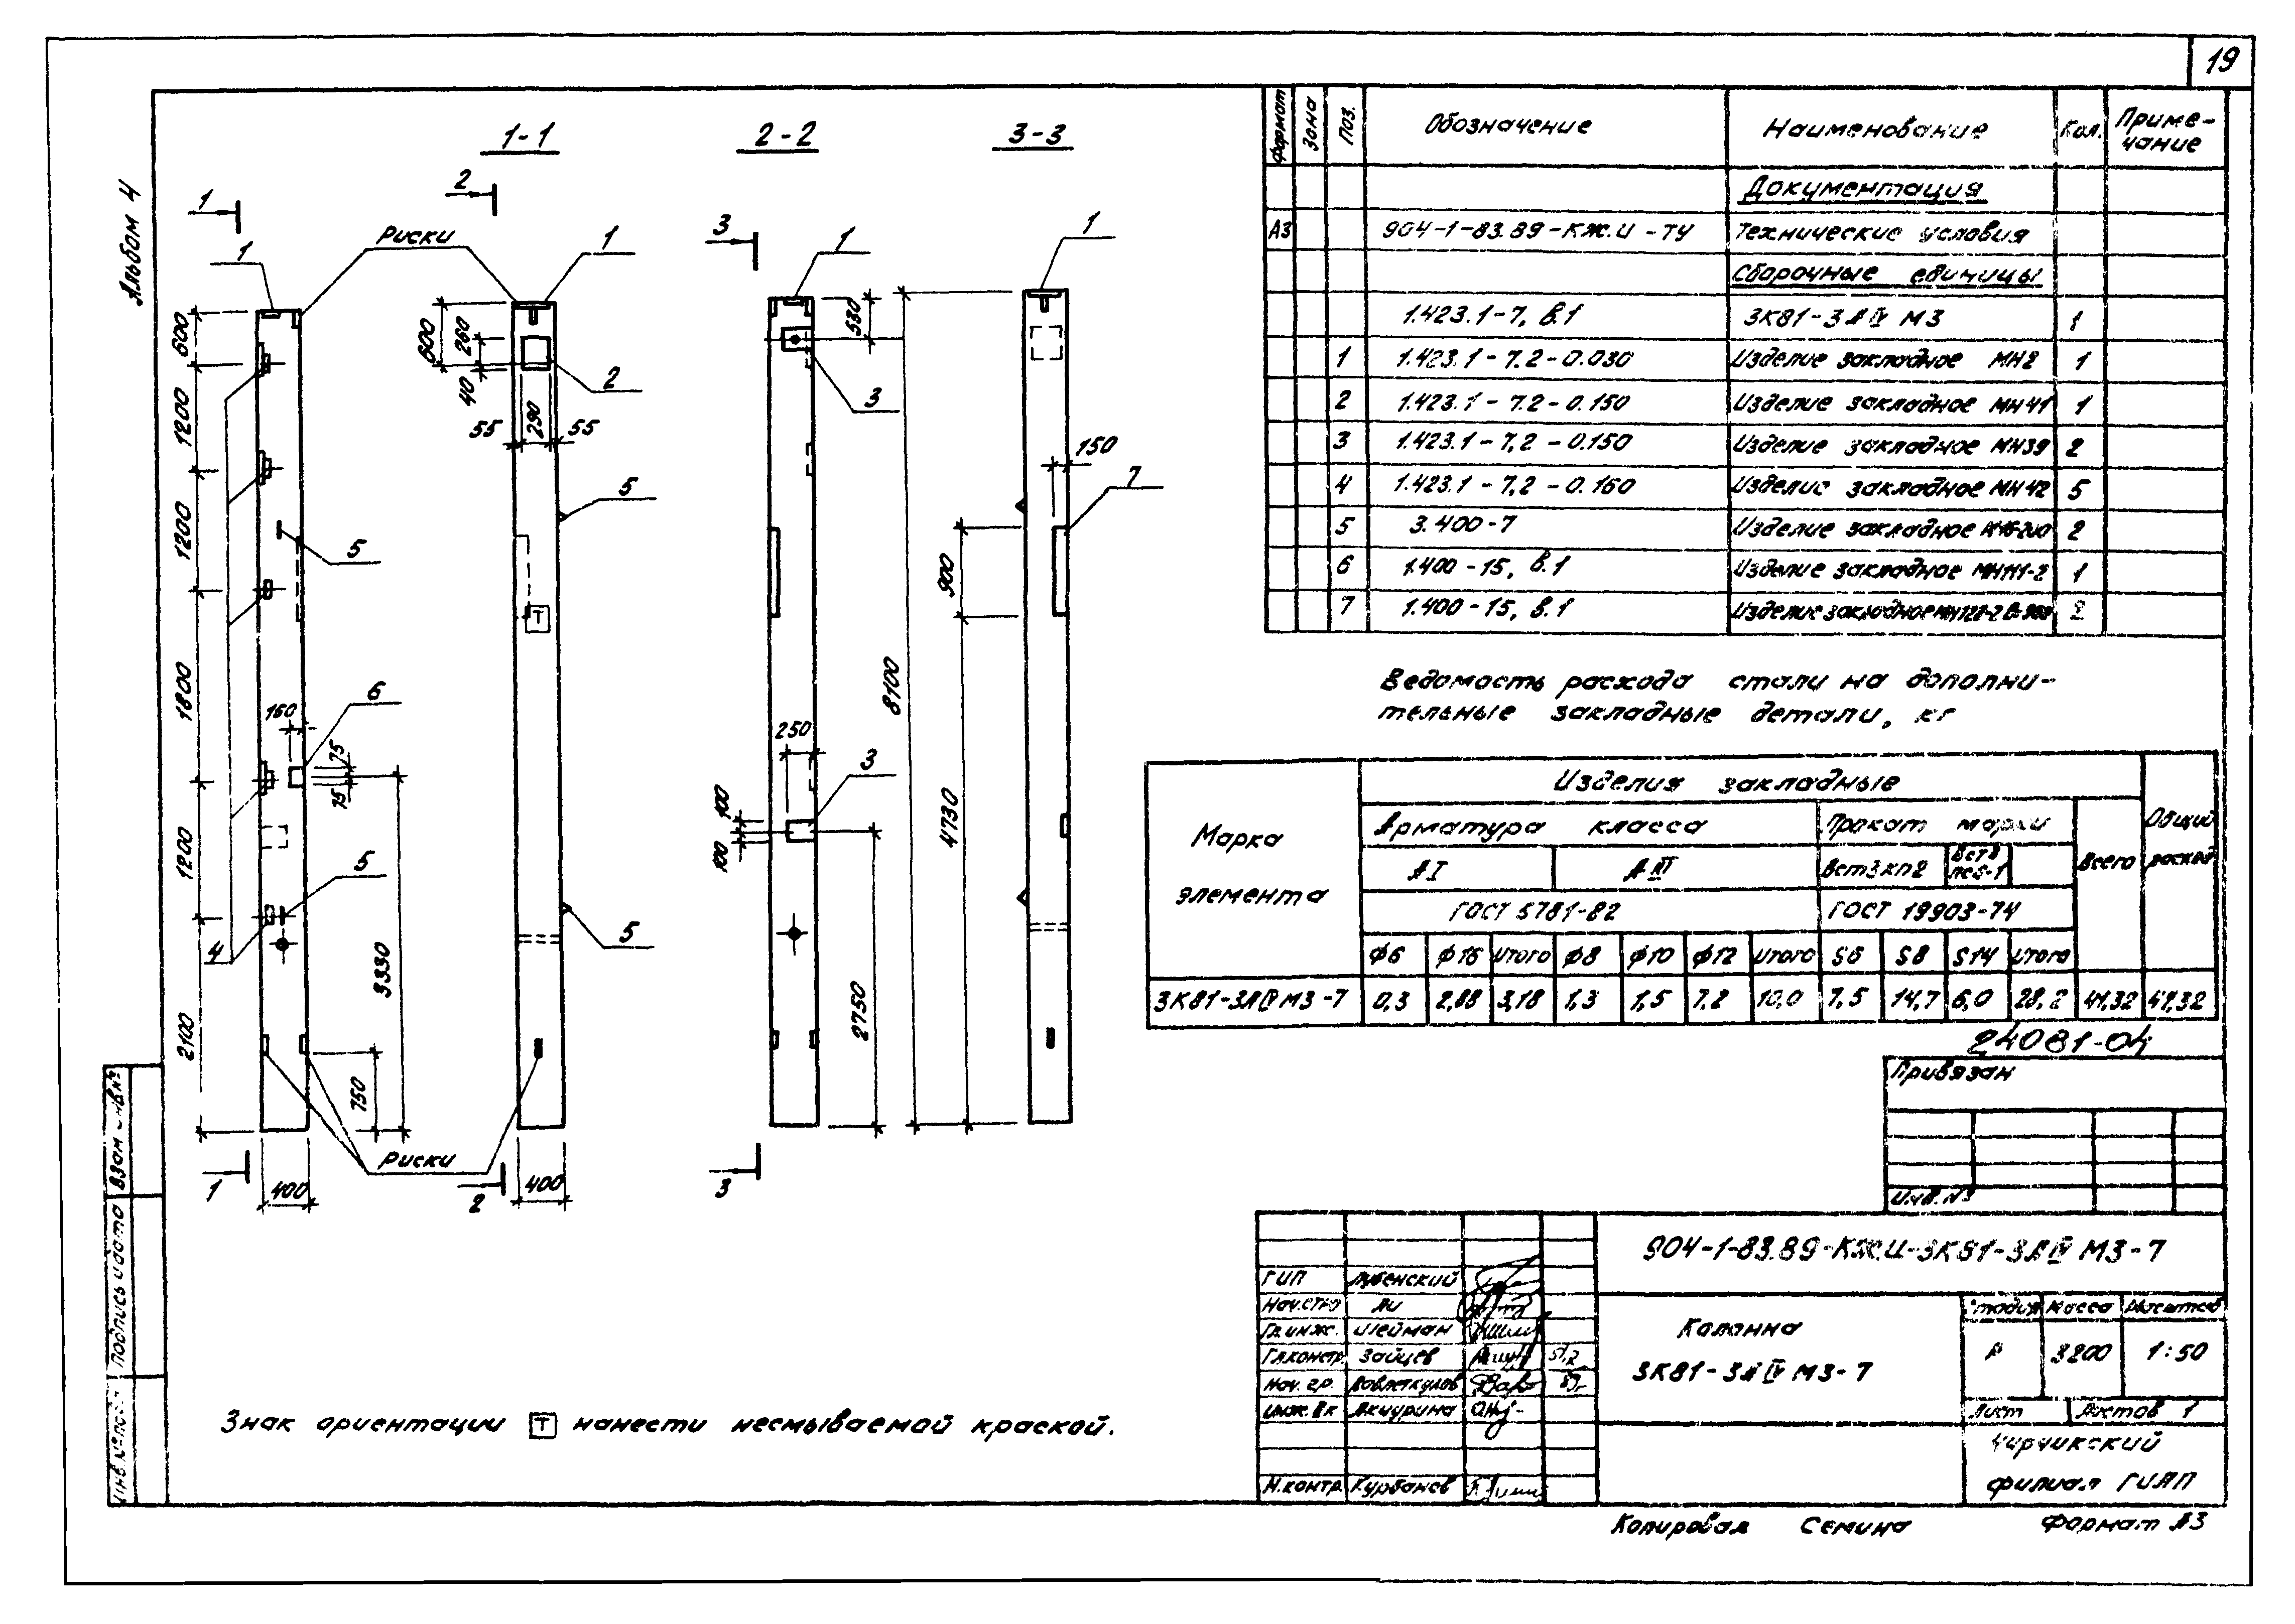 19
Альбом 4
1-1
2-2
3-3
1
2
3
Риски
1
1
1
1
600
1200
1200
1800
1200
2100
4
5
5
6
160
75
75
3330
750
400
Риски
1
2
3
600
260
40
2
55
290
55
5
5
400
530
3
250
3
100
100
2750
8100
150
7
900
4730
Т
Знак ориентации Т нанести несмываемой краской.
Формат
Зона
Поз.
Обозначение
Наименование
Кол.
Приме-
чание
Документация
А3 904-1-83.89-КЖ.И-ТУ Технические условия
Сборочные единицы
1.423.1-7, в.1 3К81-3АIV М3 1
1 1.423.1-7.2-0.030 Изделие закладное МН2 1
2 1.423.1-7.2-0.150 Изделие закладное МН41 1
3 1.423.1-7.2-0.150 Изделие закладное МН39 2
4 1.423.1-7.2-0.160 Изделие закладное МН42 5
5 3.400-7 Изделие закладное 2
6 1.400-15, в.1 Изделие закладное МН111-2 1
7 1.400-15, в.1 Изделие закладное 2
Ведомость расхода стали на дополни-
тельные закладные детали, кг
Марка
элемента
Изделия закладные
Общий
расход
Арматура класса
Прокат марки
Всего
АI
АIII
Вст3кп2
ГОСТ 5781-82
ГОСТ 19903-74
ф6 ф16 Итого ф8 ф10 ф12 Итого S6 S8 S14 Итого
3К81-3АIV М3-7 0,3 2,88 3,18 1,3 1,5 7,2 10,0 7,5 14,7 6,0 28,2 41,32 41,32
24081-04
Привязан
Инв. №
904-1-83.89-КЖ.И-3К81-3АIV М3-7
ГИП
Нач.
Ли
Гл.инж. Шейман
Гл.констр. Зайцев
Нач. гр. Давлеткулов
Акчурина
Н.контр. Курбанов
Колонна
3К81-3АIV М3-7
Стадия Масса Масштаб
Р 3200 1:50
Лист
Листов 1
Чирчикский
филиал ГИАП
Взам инв.№
Подпись и дата
Инв. № подл.
Копировал Семина
Формат А3